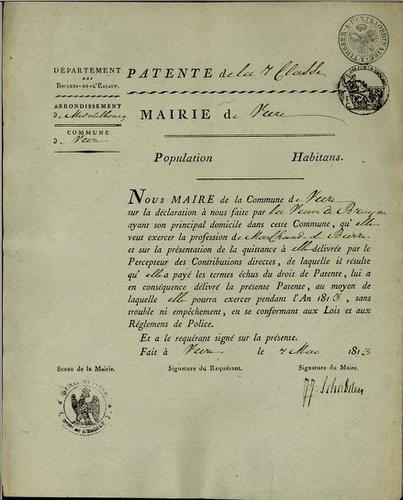 A TIMBRER A L'EXTRAORDINAIRE
DÉPARTEMENT
DES
BOUCHES-DE-L'ESCAUT.
PATENTE de la 7 Classe
ARRONDISSEMENT
de Middelbourg
MAIRIE de Veere
COMMUNE
de Veere
Population Habitans.
NOUS MAIRE de la Commune de Veere
sur la déclaration à nous faite par la Veuve de Bruyne
ayant son principal domicile dans cette Commune, qu'elle
veut exercer la profession de Marchande de Beurre
et sur la présentation de la quittance à elle délivrée par le
Percepteur des Contributions directes, de laquelle il résulte
qu'elle a payé les termes échus du droit de Patente, lui a
en conséquence délivré la présente Patente, au moyen de
laquelle elle pourra exercer pendant l'An 1813, sans
trouble ni empêchement, en se conformant aux Lois et aux
Réglemens de Police.
Et a le requérant signé sur la présente.
Fait à Veere le 7 Mai 1813
Sceau de la Mairie. Signature du Requérant. Signature du Maire.